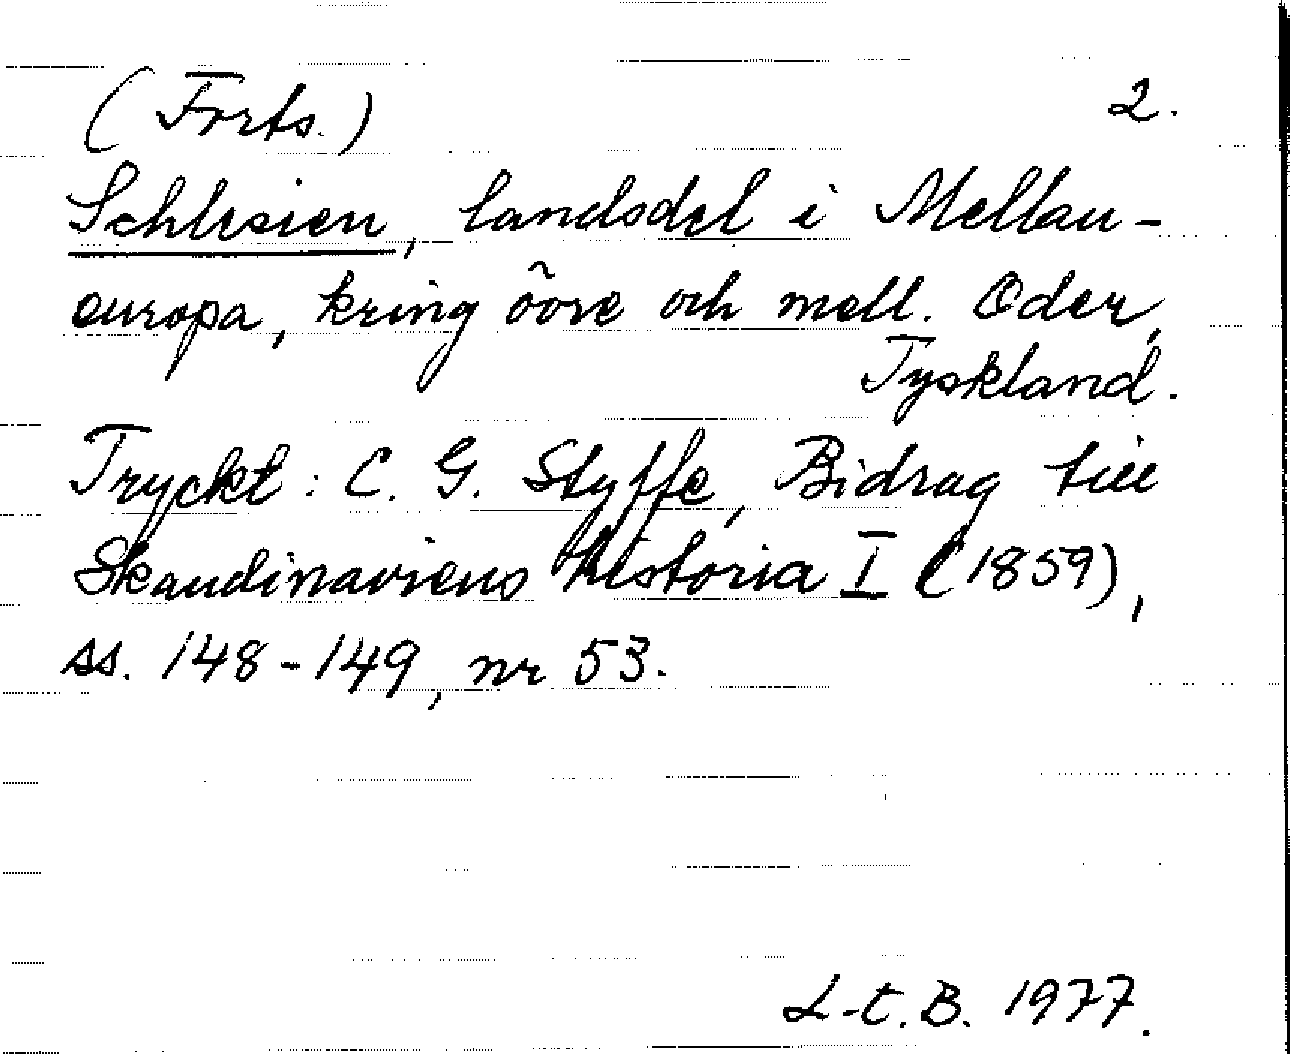 (Forts.) 2.
Schlesien, landsdel i Mellan-
europa, kring övre och mell. Oder,
Tyskland.
Tryckt: C. G. Styffe, Bidrag till
Skandinaviens historia I (1859),
ss. 148-149, nr 53.
L-t. B. 1977.